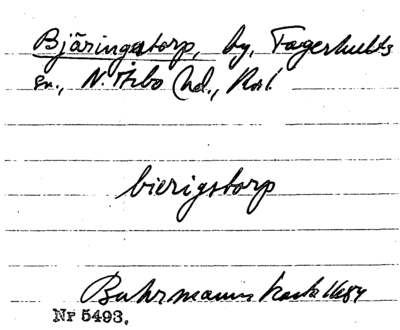 Bjäringstorp, by, Fagerhults
sn., N. Åsbo hd., Krist.
bierigstorp
Buhrmanns karta 1684
Nr 5493.